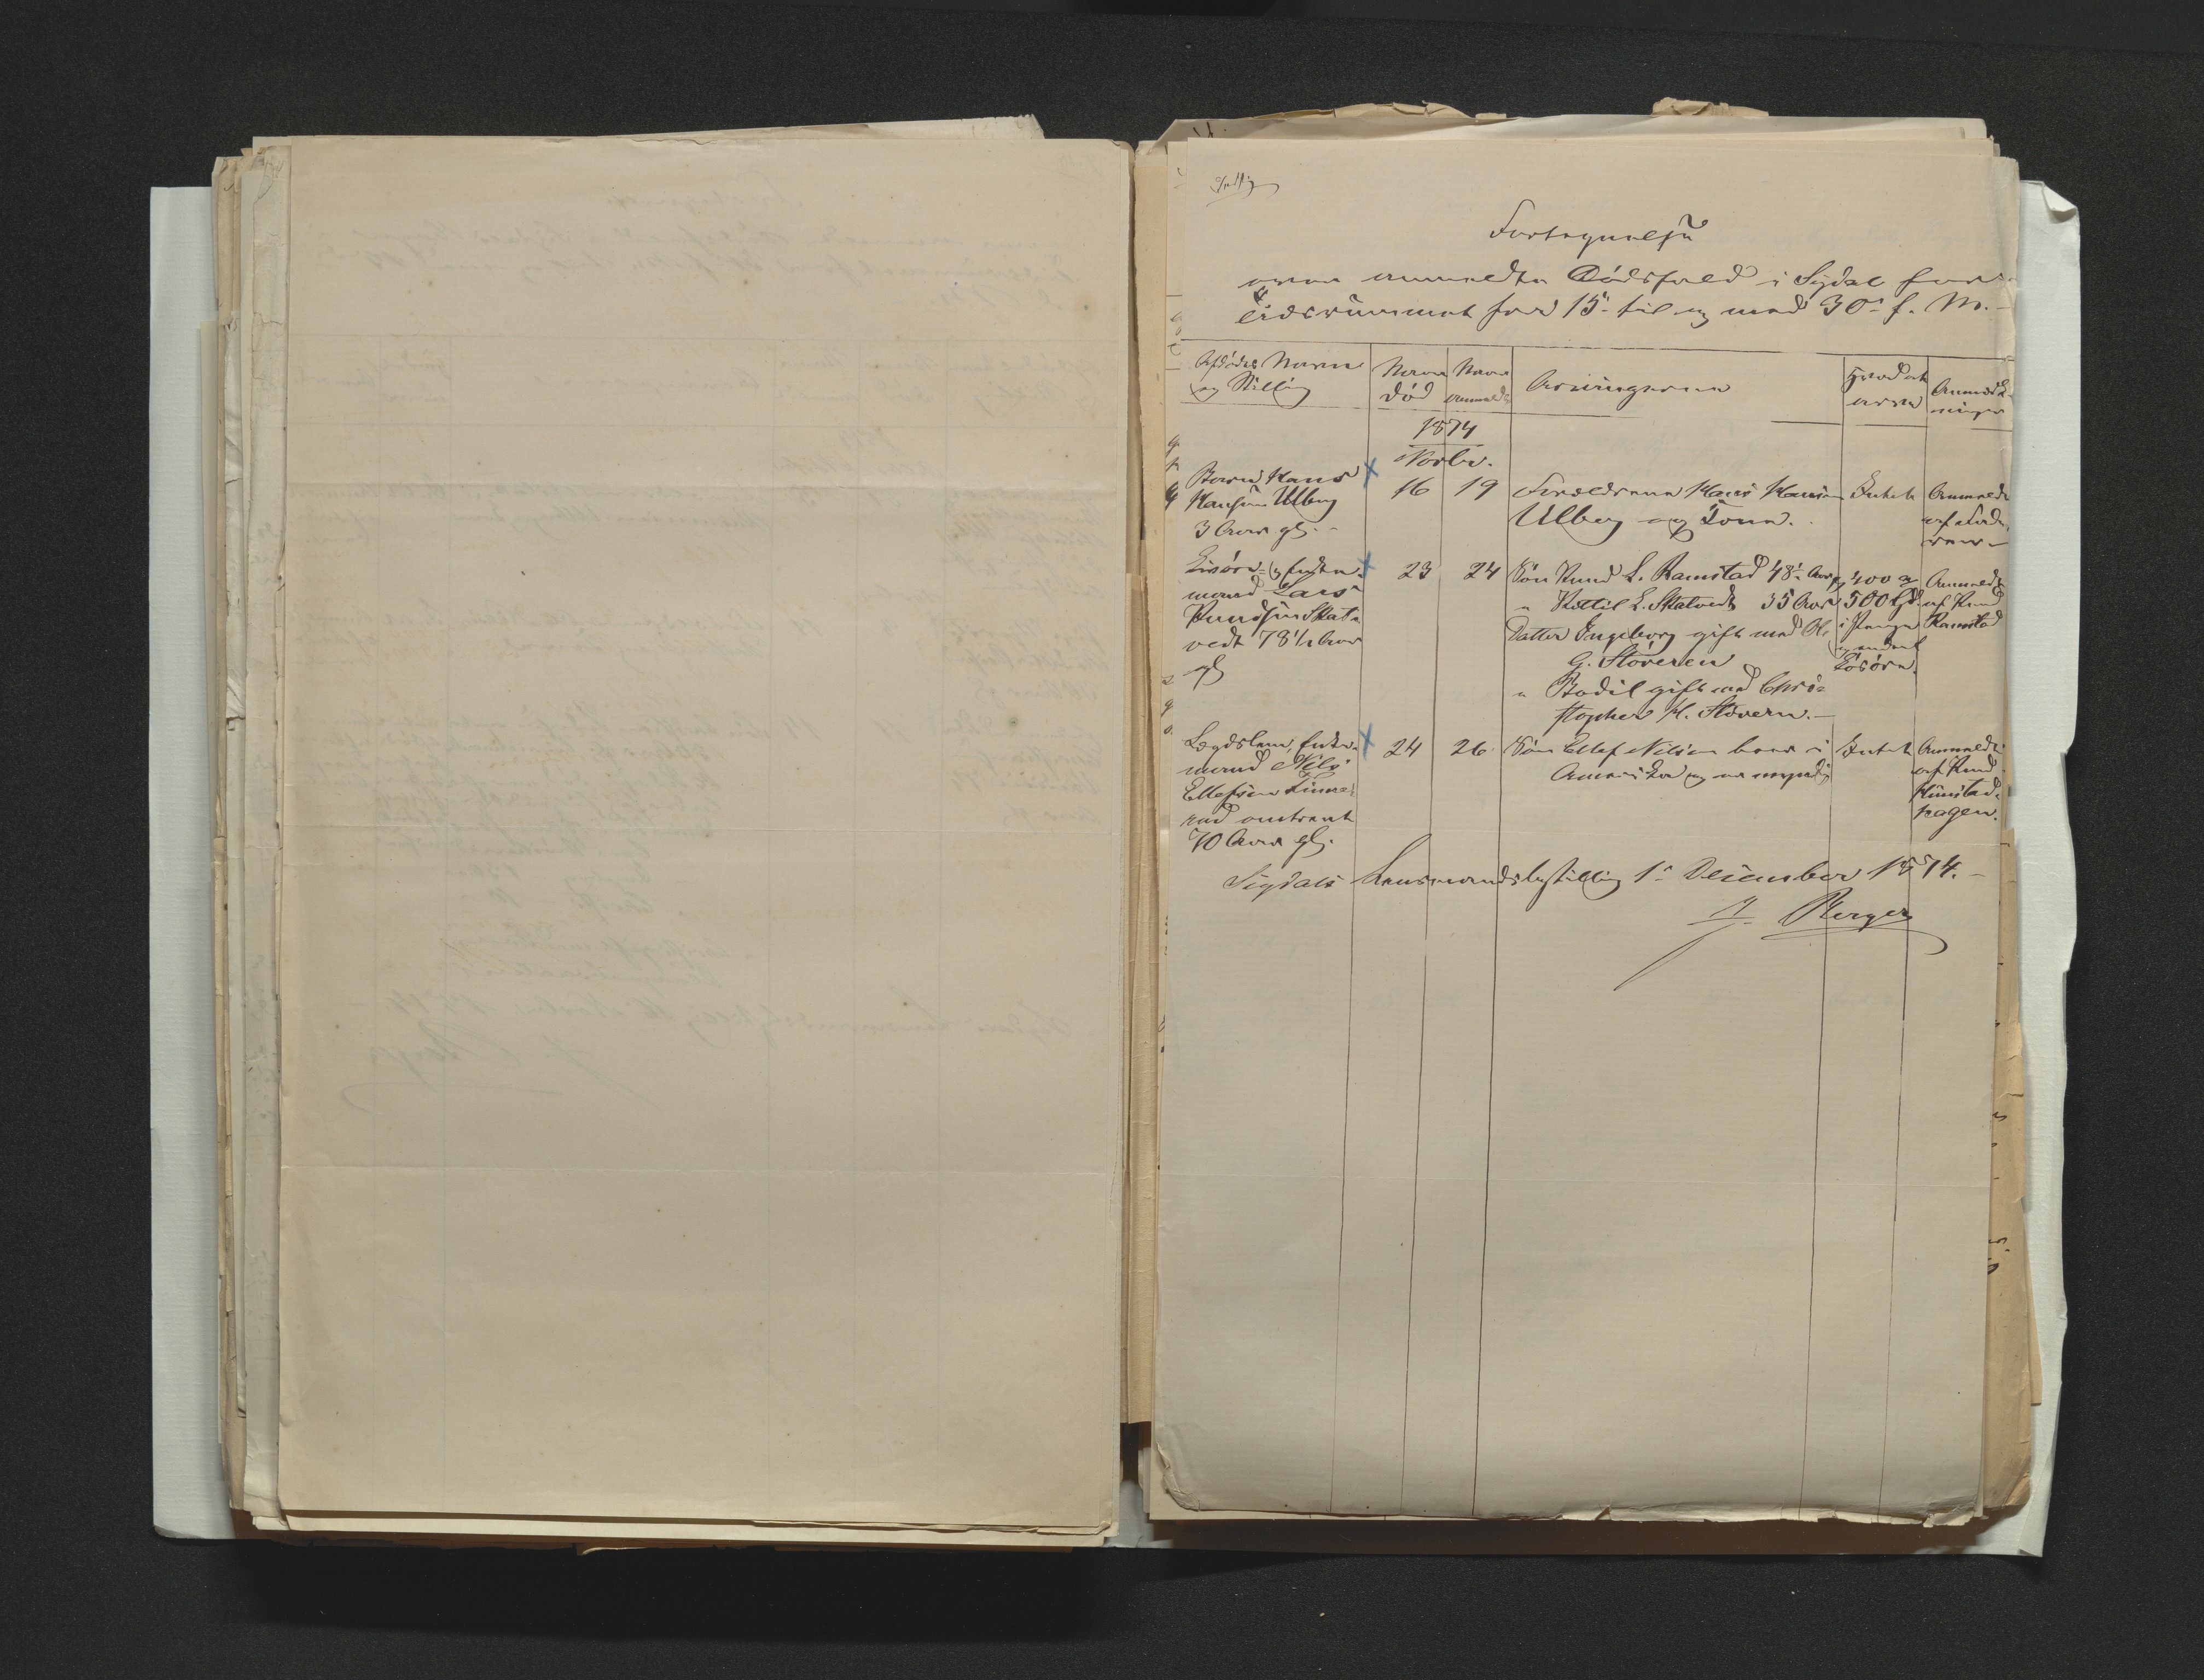 Fortegnelse
over anmeldte Dødsfald i Sigdal for
Tidsrummet fra 15de til og med 30te f. M.
Afdødes Navn
og Stilling
Naar
død
Naar
anmeldt
Arvingerne
Hvad at
arve
Anmærk-
ninger
1874
Novbr.
Barn Hans
Hansen Ulberg
3 Aar gl.
16
19
Forældrene Hans Hansen
Ulberg og Kone.
Intet
Anmeldt
af Fade-
ren
Livøre- og Enke-
mand Lars
Knudsen Skat-
vedt 78 1/2 Aar
gl
23
24
Søn Knud L. Ramstad 48 Aar
" Kettil L. Skatvedt 35 Aar
Datter Ingeborg gift med Ol.
G. Støveren
" Bodil gift med Chri-
stopher H. Støvern.
400 a
500 Spd
i Penge
og andet
Løsøre.
Anmeldt
af Knud
Ramstad
Lægdslem, Enke-
mand Nils
Ellefsen Limme-
rud omtrent
70 Aar gl.
24
26
Søn Ellef Nilsen boer i
Amerika og er myndig
Intet
Anmeldt
af Knud
hagen.
Sigdals Lensmandsbestilling 1ste December 1874.
Berger